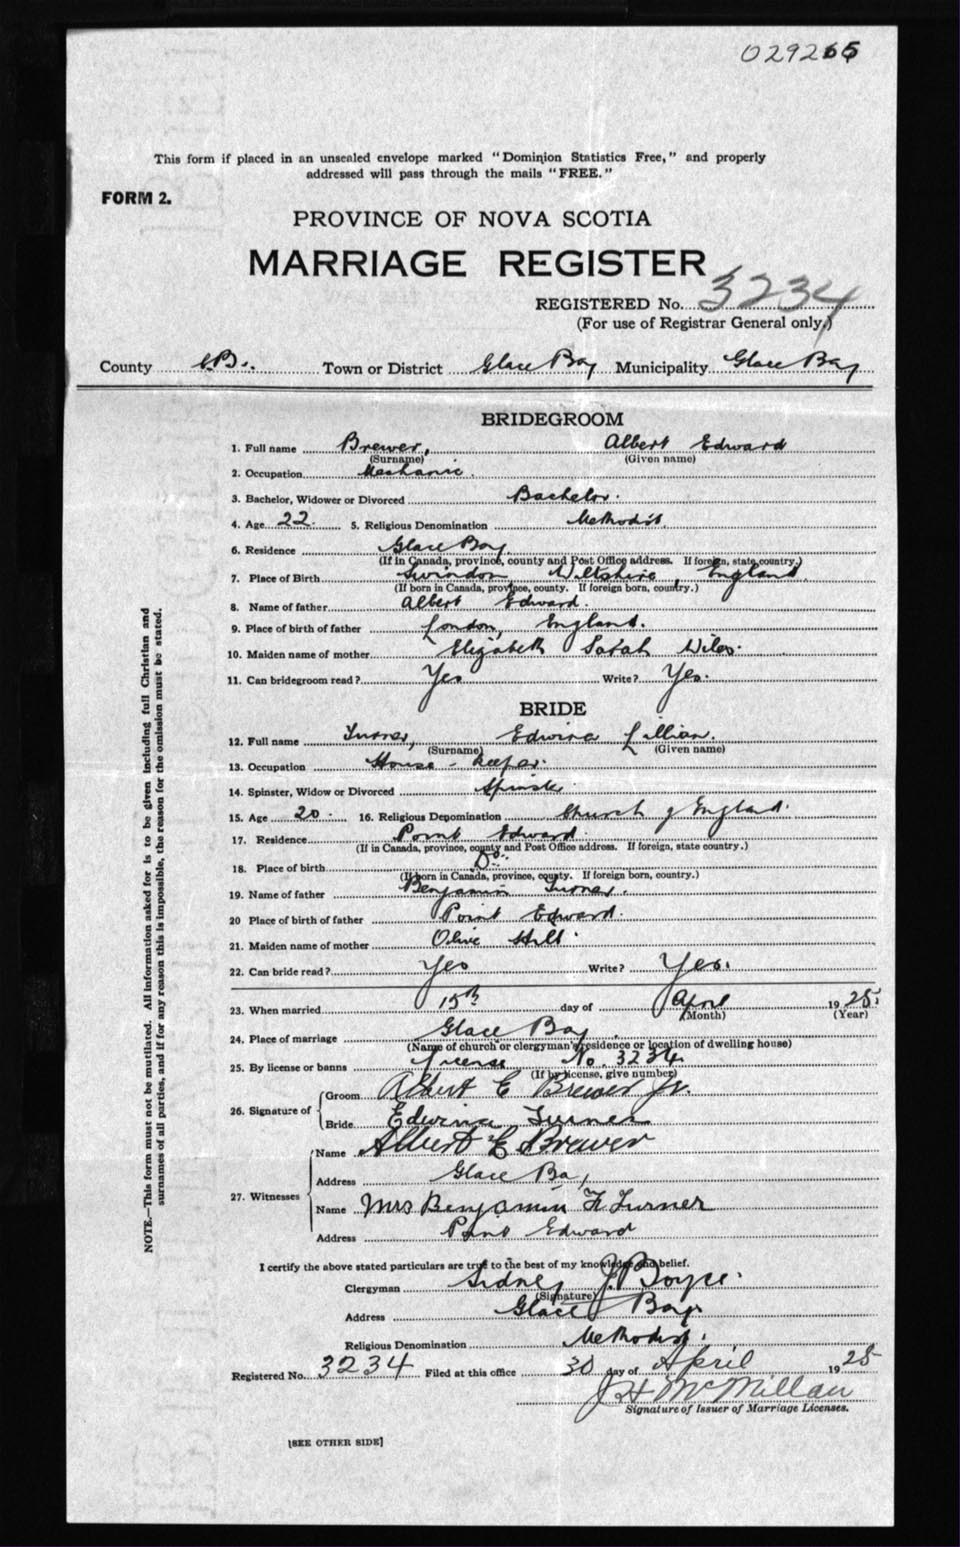 029265
This form if placed in an unsealed envelope marked "Dominion Statistics Free," and properly
addressed will pass through the mails "FREE."
FORM 2.
PROVINCE OF NOVA SCOTIA
MARRIAGE REGISTER
REGISTERED No. 3234
(For use of Registrar General only.)
County C.B. Town or District Glace Bay Municipality Glace Bay
BRIDEGROOM
1. Full name Brewer, Albert Edward
(Surname) (Given name)
2. Occupation Mechanic
3. Bachelor, Widower or Divorced Bachelor.
4. Age 22. 5. Religious Denomination Methodist
6. Residence Glace Bay
(If in Canada, province, county and Post Office address. If foreign, state country.)
7. Place of Birth Swindon Wiltshire, England.
(If born in Canada, province, county. If foreign born, country.)
8. Name of father Albert Edward.
9. Place of birth of father London, England.
10. Maiden name of mother Elizabeth Sarah
11. Can bridegroom read? Yes Write? Yes.
BRIDE
12. Full name Turner, Edwina Lillian.
(Surname) (Given name)
13. Occupation House-keeper.
14. Spinster, Widow or Divorced Spinster
15. Age 20. 16. Religious Denomination Church of England.
17. Residence Point Edward
(If in Canada, province, county and Post Office address. If foreign, state country.)
18. Place of birth Do.
(If born in Canada, province, county. If foreign born, country.)
19. Name of father Benjamin Turner.
20 Place of birth of father Point Edward.
21. Maiden name of mother Olive
22. Can bride read? Yes Write? Yes.
23. When married 15th day of April 1925.
(Month) (Year)
24. Place of marriage Glace Bay
(Name of church or clergyman's residence or location of dwelling house)
25. By license or banns License No. 3234
(If by license, give number)
26. Signature of Groom Albert E Brewer Jr.
Bride Edwina Turner
27. Witnesses Name Albert E Brewer
Address Glace Bay
Name Mrs Benjamin F. Turner
Address Point Edward
I certify the above stated particulars are true to the best of my knowledge and belief.
Clergyman Sidney J. Boyce.
(Signature)
Address Glace Bay.
Religious Denomination Methodist.
Registered No. 3234 Filed at this office 30 day of April 1925
J H McMillan
Signature of Issuer of Marriage Licenses.
[SEE OTHER SIDE]
NOTE.—This form must not be mutilated. All information asked for is to be given including full Christian and
surnames of all parties, and if for any reason this is impossible, the reason for the omission must be stated.